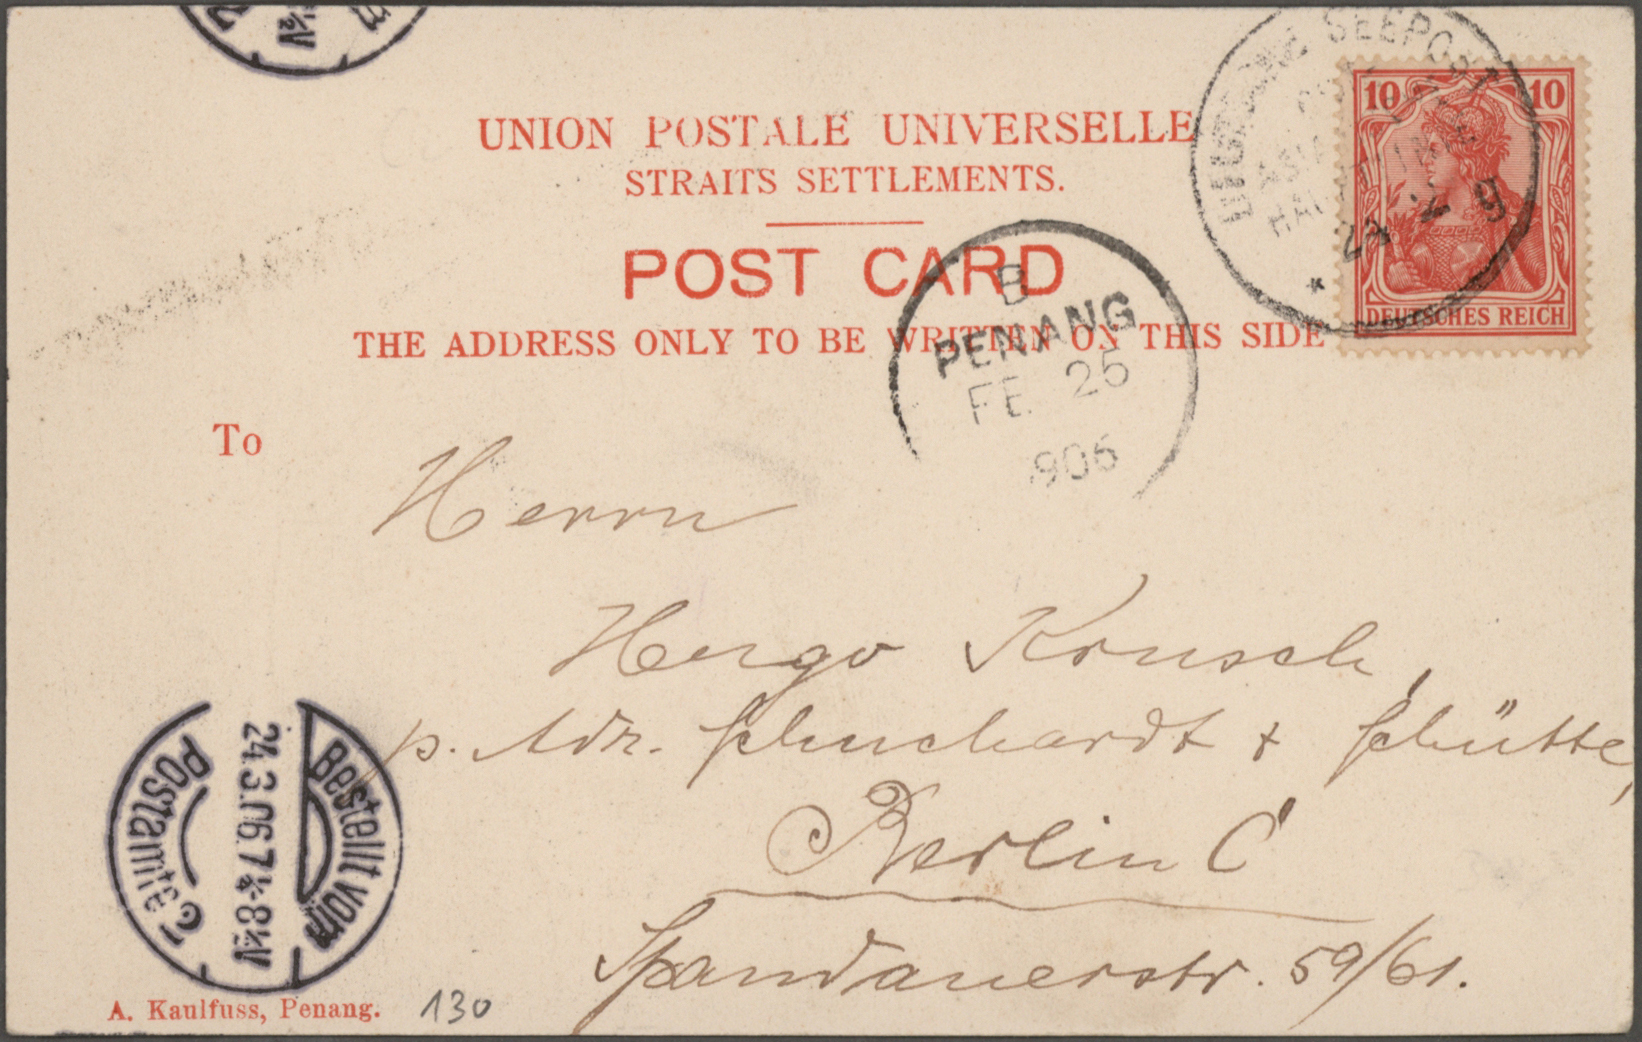 ½V
DEUTSCHE SEEPOST
OST-
ASIATISCHE
HAUPTLINIE
24 2
10 10
DEUTSCHES REICH
UNION POSTALE UNIVERSELLE
STRAITS SETTLEMENTS.
POST CARD
THE ADDRESS ONLY TO BE WRITTEN ON THIS SIDE
B
PENANG
FE 25
906
To
Herrn
Hugo Krusch,
p. Adr. Schuchardt + Schütte,
Berlin C
Spandauerstr. 59/61.
Bestellt vom
24.3.06.7¼-8¼V
Postamte 2
A. Kaulfuss, Penang.
130